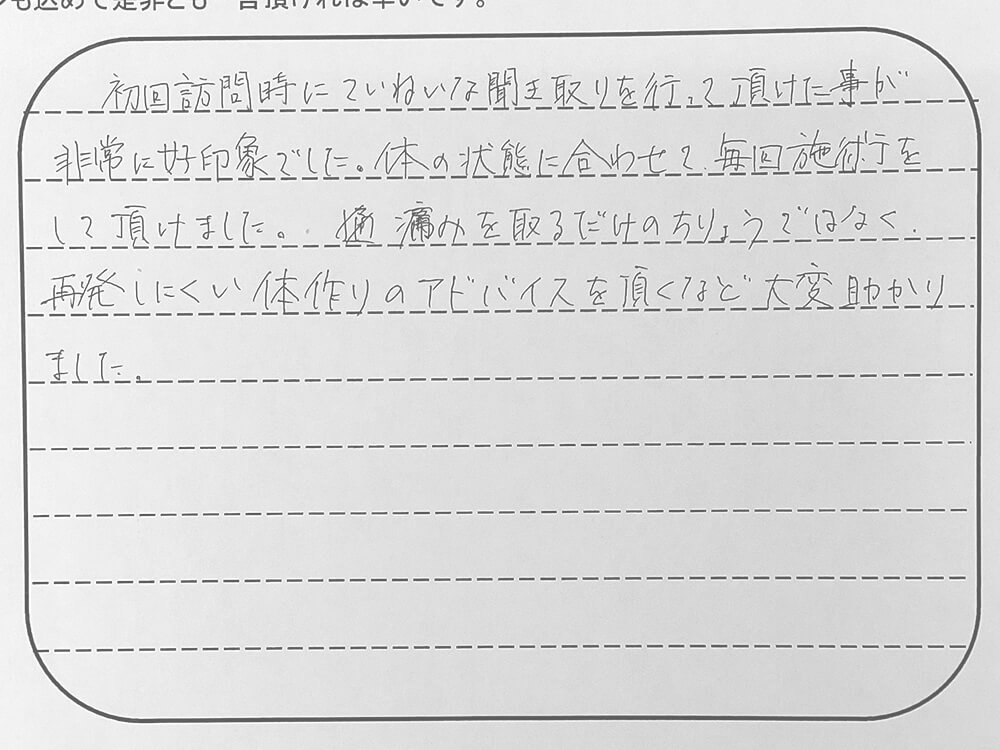 も込めて是非とも一言頂ければ幸いです。
初回訪問時にていねいな聞き取りを行って頂けた事が
非常に好印象でした。体の状態に合わせて、毎回施術を
して頂けました。痛みを取るだけのちりょうではなく、
再発しにくい体作りのアドバイスを頂くなど大変助かり
ました。